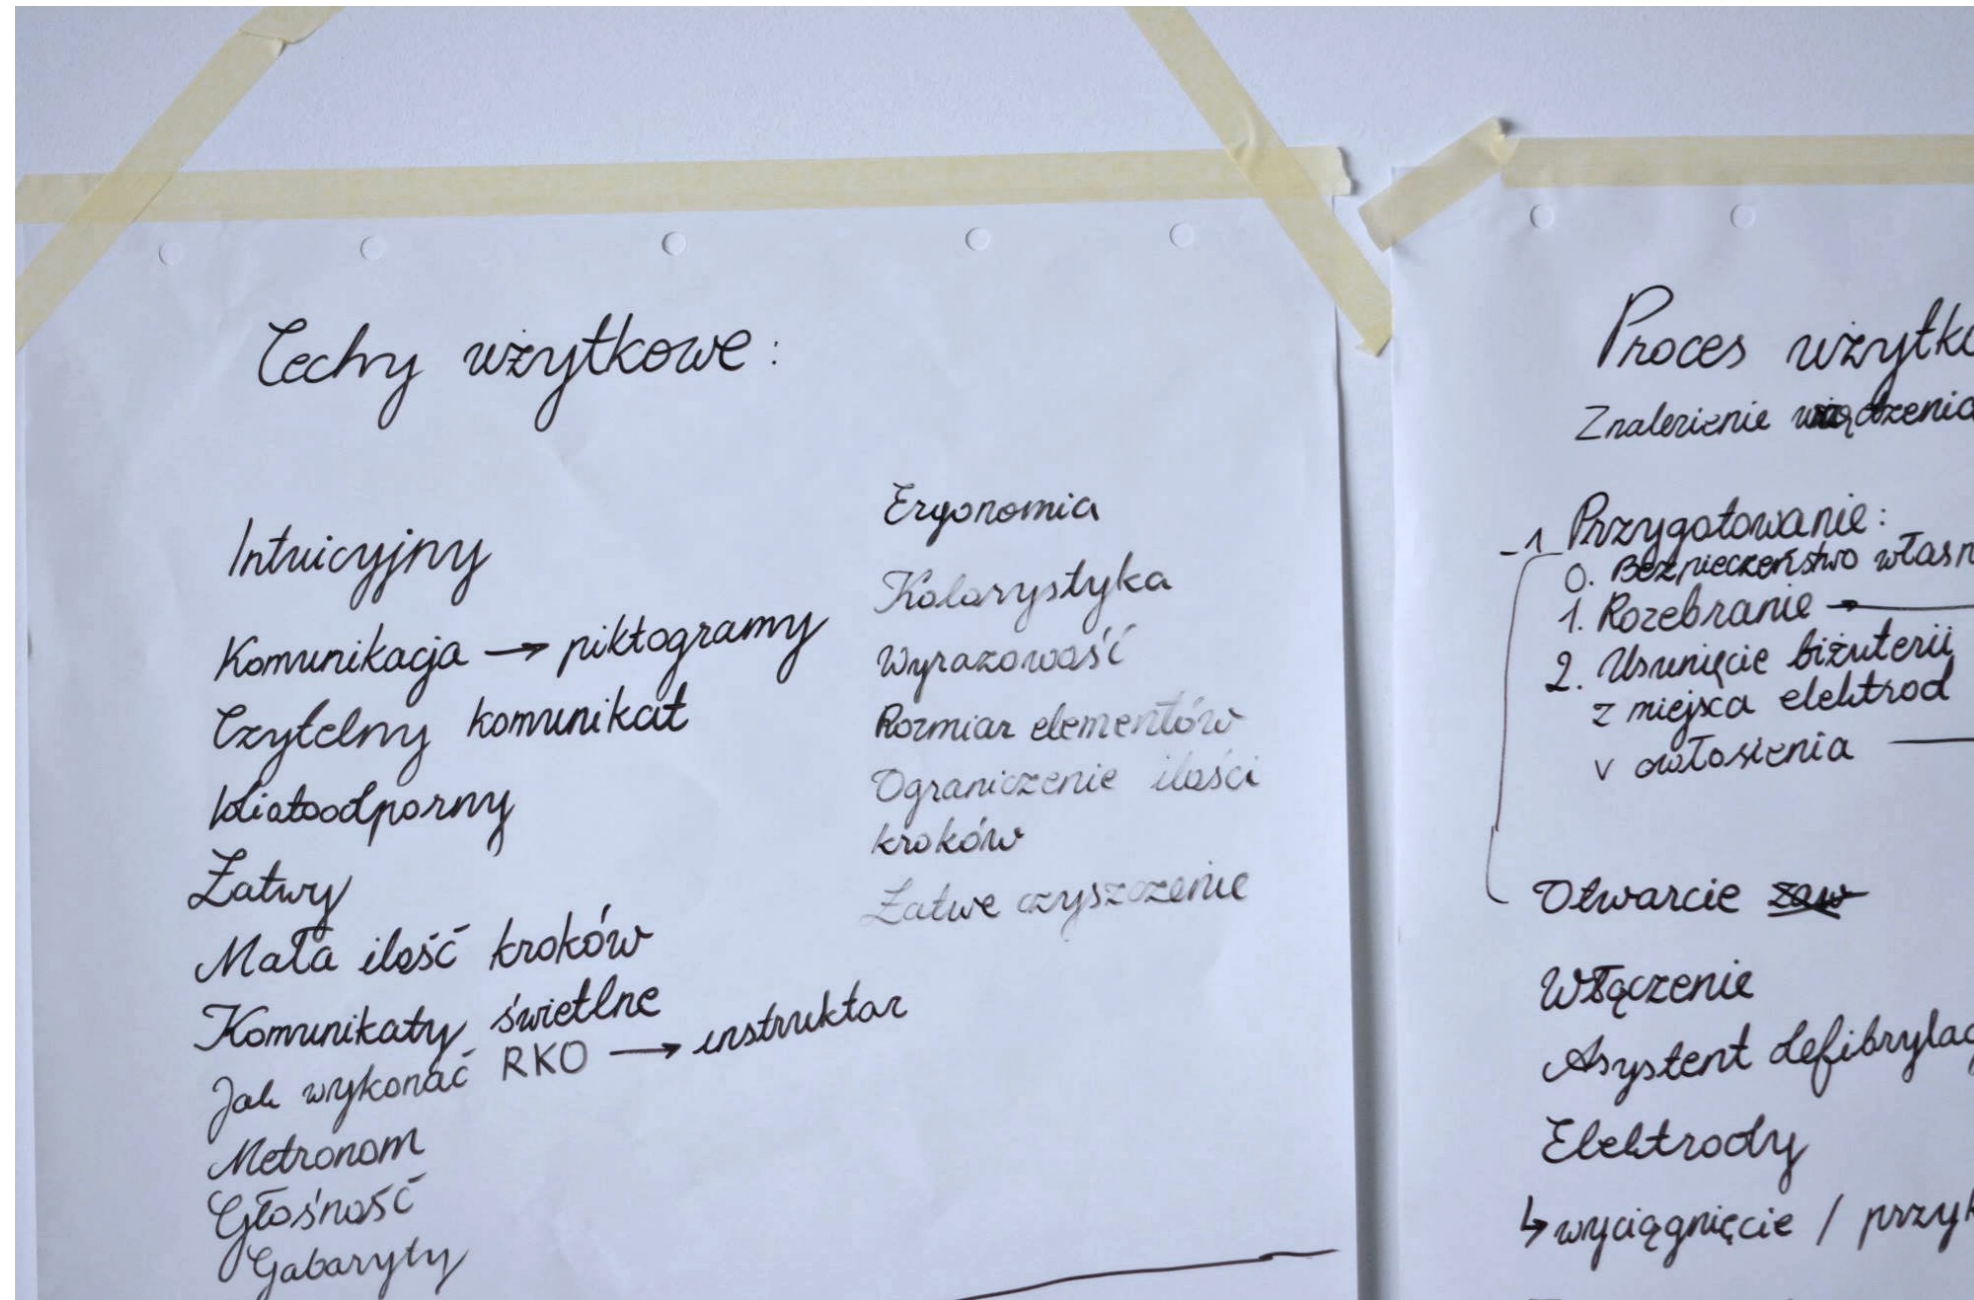 Cechy użytkowe:
Intuicyjny
Komunikacja → piktogramy
Czytelny komunikat
Idiotoodporny
Łatwy
Mała ilość kroków
Komunikaty świetlne
Jak wykonać RKO → instruktor
Metronom
Głośność
Gabaryty
Ergonomia
Kolorystyka
Wyrazowość
Rozmiar elementów
Ograniczenie ilości
kroków
Łatwe czyszczenie
Proces użytko
Znalezienie
-1 Przygotowanie:
0. Bezpieczeństwo własn
1. Rozebranie →
2. Usunięcie biżuterii
z miejsca elektrod
v owłosienia
Otwarcie
Włączenie
Asystent defibrylac
Elektrody
↳ wyciągnięcie / przyk